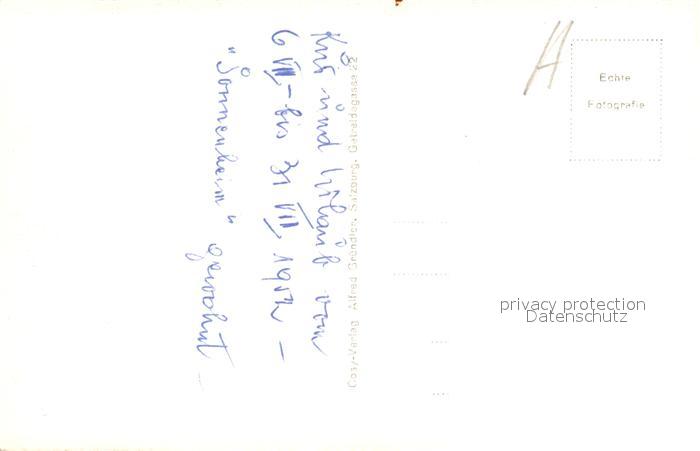 Kur und Urlaub vom
6 VII – bis 31 VII 1952 –
"Sonnenheim" gewohnt –
Cosy-Verlag Alfred Gründler, Salzburg, Getreidegasse 22
A
Echte
Fotografie
privacy protection
Datenschutz